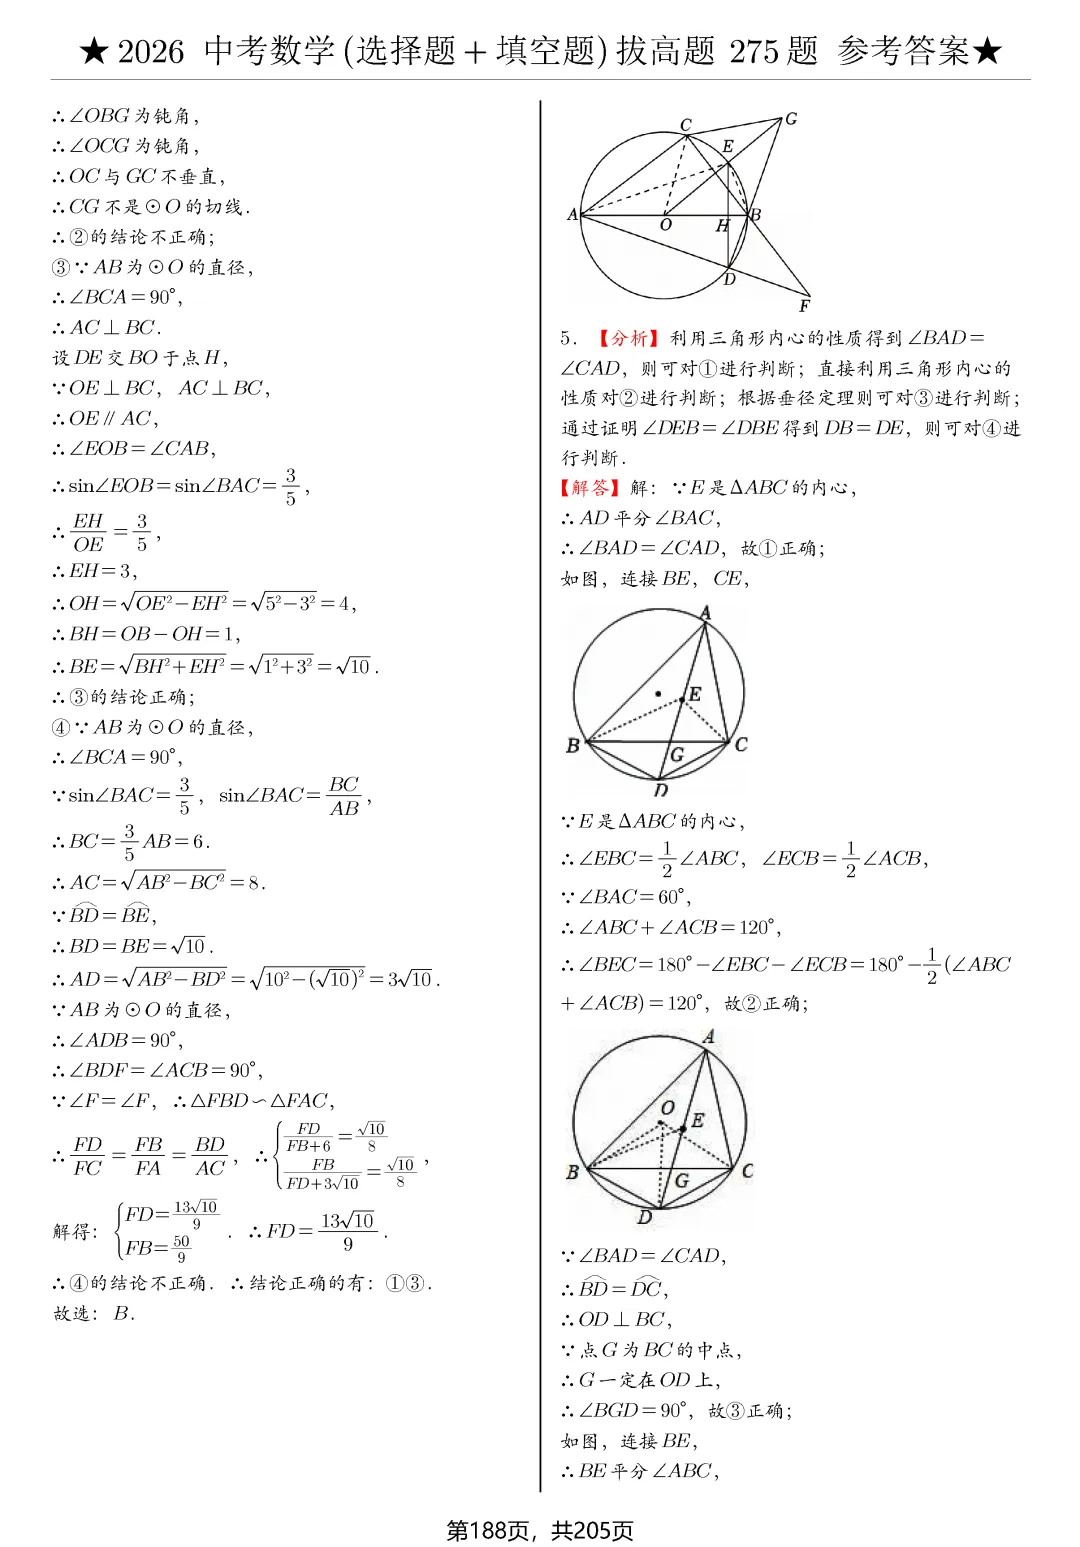 ★ 2026 中考数学(选择题+填空题)拔高题 275题 参考答案★
∴∠OBG为钝角，
∴∠OCG为钝角，
∴OC与GC不垂直，
∴CG不是⊙O的切线．
∴②的结论不正确；
③∵AB为⊙O的直径，
∴∠BCA=90°，
∴AC⊥BC．
设DE交BO于点H，
∵OE⊥BC，AC⊥BC，
∴OE∥AC，
∴∠EOB=∠CAB，
∴sin∠EOB=sin∠BAC=3/5，
∴EH/OE=3/5，
∴EH=3，
∴OH=√(OE²−EH²)=√(5²−3²)=4，
∴BH=OB−OH=1，
∴BE=√(BH²+EH²)=√(1²+3²)=√10．
∴③的结论正确；
④∵AB为⊙O的直径，
∴∠BCA=90°，
∵sin∠BAC=3/5，sin∠BAC=BC/AB，
∴BC=3/5AB=6．
∴AC=√(AB²−BC²)=8．
∵⌒BD=⌒BE，
∴BD=BE=√10．
∴AD=√(AB²−BD²)=√(10²−(√10)²)=3√10．
∵AB为⊙O的直径，
∴∠ADB=90°，
∴∠BDF=∠ACB=90°，
∵∠F=∠F，∴△FBD∽△FAC，
∴FD/FC=FB/FA=BD/AC，∴{FD/(FB+6)=√10/8 FB/(FD+3√10)=√10/8，
解得：{FD=13√10/9 FB=50/9．∴FD=13√10/9．
∴④的结论不正确．∴结论正确的有：①③．
故选：B．
C
G
E
A
O
H
B
D
F
5．【分析】利用三角形内心的性质得到∠BAD=
∠CAD，则可对①进行判断；直接利用三角形内心的
性质对②进行判断；根据垂径定理则可对③进行判断；
通过证明∠DEB=∠DBE得到DB=DE，则可对④进
行判断．
【解答】解：∵E是ΔABC的内心，
∴AD平分∠BAC，
∴∠BAD=∠CAD，故①正确；
如图，连接BE，CE，
A
E
B
G
C
D
∵E是ΔABC的内心，
∴∠EBC=1/2∠ABC，∠ECB=1/2∠ACB，
∵∠BAC=60°，
∴∠ABC+∠ACB=120°，
∴∠BEC=180°−∠EBC−∠ECB=180°−1/2(∠ABC
+∠ACB)=120°，故②正确；
A
O
E
B
G
C
D
∵∠BAD=∠CAD，
∴⌒BD=⌒DC，
∴OD⊥BC，
∵点G为BC的中点，
∴G一定在OD上，
∴∠BGD=90°，故③正确；
如图，连接BE，
∴BE平分∠ABC，
第188页，共205页